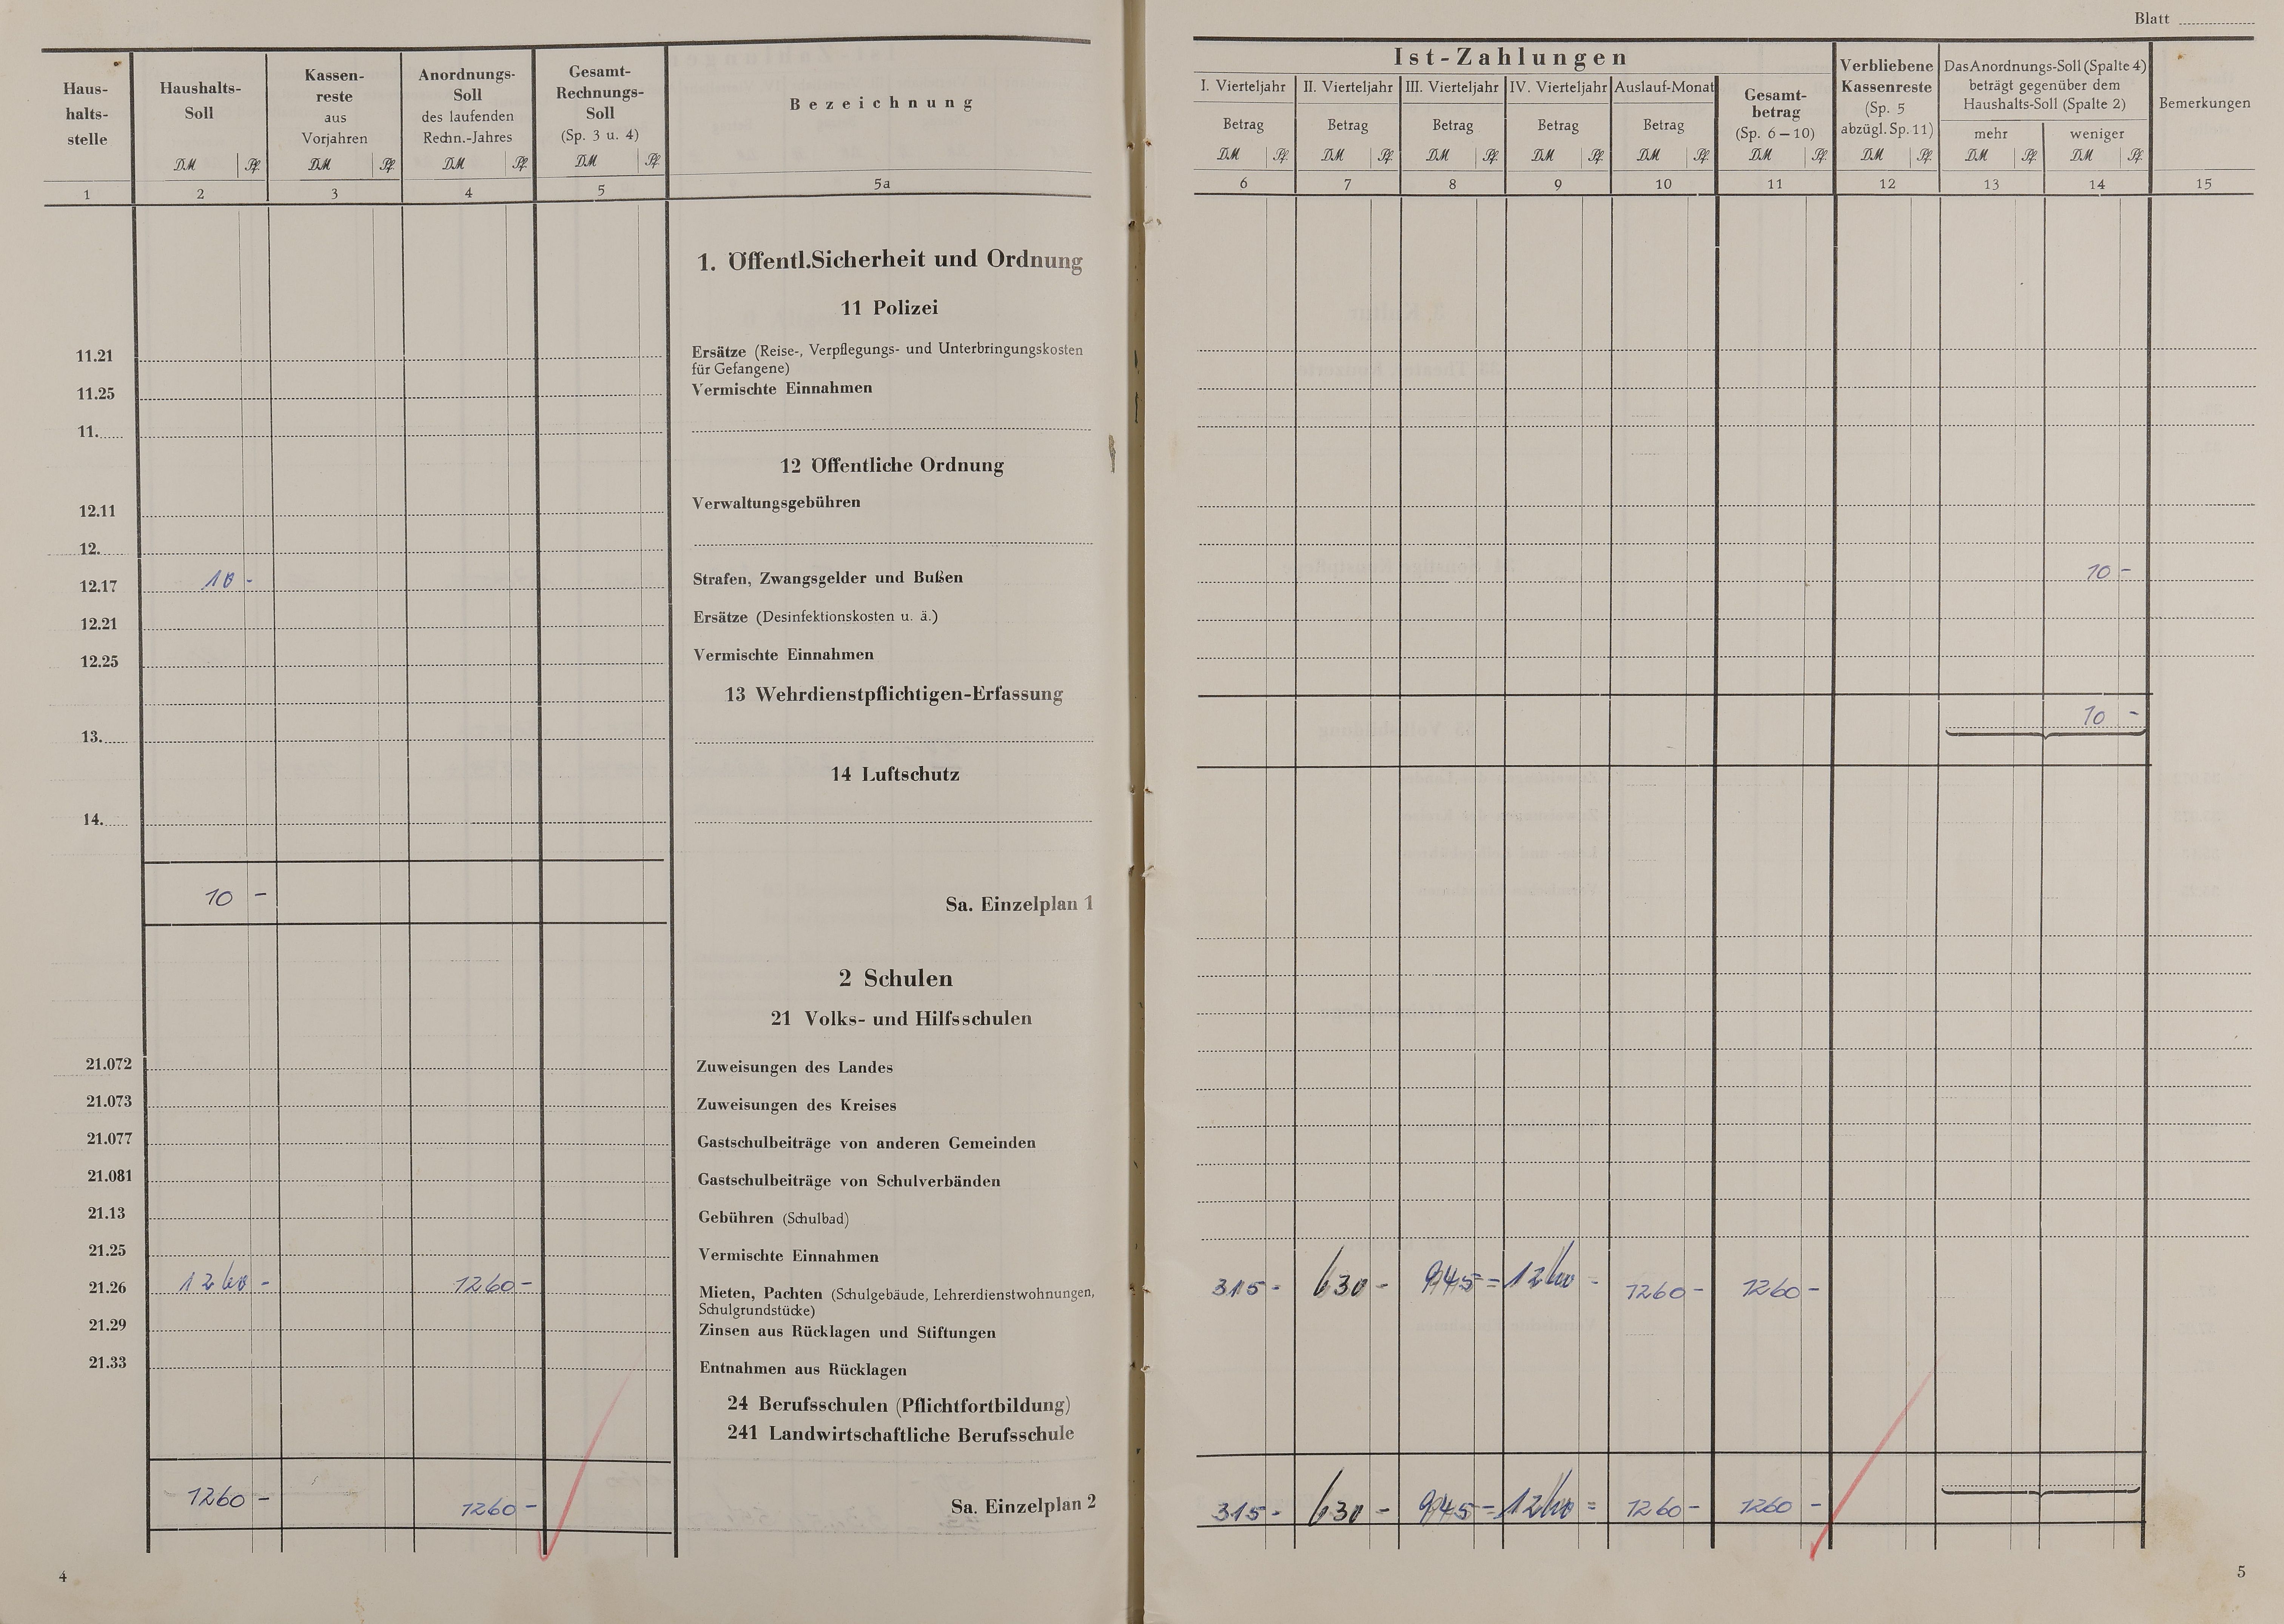 Blatt
Haus-
halts-
stelle
Haushalts-
Soll
Kassen-
reste
aus
Vorjahren
Anordnungs-
Soll
des laufenden
Rechn.-Jahres
Gesamt-
Rechnungs-
Soll
(Sp. 3 u. 4)
Bezeichnung
DM Pf. DM Pf. DM Pf. DM Pf.
1 2 3 4 5 5a
Ist-Zahlungen
I. Vierteljahr II. Vierteljahr III. Vierteljahr IV. Vierteljahr Auslauf-Monat
Betrag Betrag Betrag Betrag Betrag
Gesamt-
betrag
(Sp. 6–10)
Verbliebene
Kassenreste
(Sp. 5
abzügl. Sp. 11)
Das Anordnungs-Soll (Spalte 4)
beträgt gegenüber dem
Haushalts-Soll (Spalte 2)
mehr weniger
Bemerkungen
DM Pf. DM Pf. DM Pf. DM Pf. DM Pf. DM Pf. DM Pf. DM Pf. DM Pf.
6 7 8 9 10 11 12 13 14 15
1. Öffentl.Sicherheit und Ordnung
11 Polizei
11.21 Ersätze (Reise-, Verpflegungs- und Unterbringungskosten
für Gefangene)
11.25 Vermischte Einnahmen
11.
12 Öffentliche Ordnung
12.11 Verwaltungsgebühren
12.
12.17 10 - Strafen, Zwangsgelder und Bußen 10 -
12.21 Ersätze (Desinfektionskosten u. ä.)
12.25 Vermischte Einnahmen
13 Wehrdienstpflichtigen-Erfassung
10 -
13.
14 Luftschutz
14.
10 - Sa. Einzelplan 1
2 Schulen
21 Volks- und Hilfsschulen
21.072 Zuweisungen des Landes
21.073 Zuweisungen des Kreises
21.077 Gastschulbeiträge von anderen Gemeinden
21.081 Gastschulbeiträge von Schulverbänden
21.13 Gebühren (Schulbad)
21.25 Vermischte Einnahmen
21.26 1260 - 1260 - Mieten, Pachten (Schulgebäude, Lehrerdienstwohnungen, 315 - 630 - 945 = 1260 - 1260 - 1260 -
Schulgrundstücke)
21.29 Zinsen aus Rücklagen und Stiftungen
21.33 Entnahmen aus Rücklagen
24 Berufsschulen (Pflichtfortbildung)
241 Landwirtschaftliche Berufsschule
1260 - 1260 - Sa. Einzelplan 2 315 - 630 - 945 = 1260 = 1260 - 1260 -
4
5